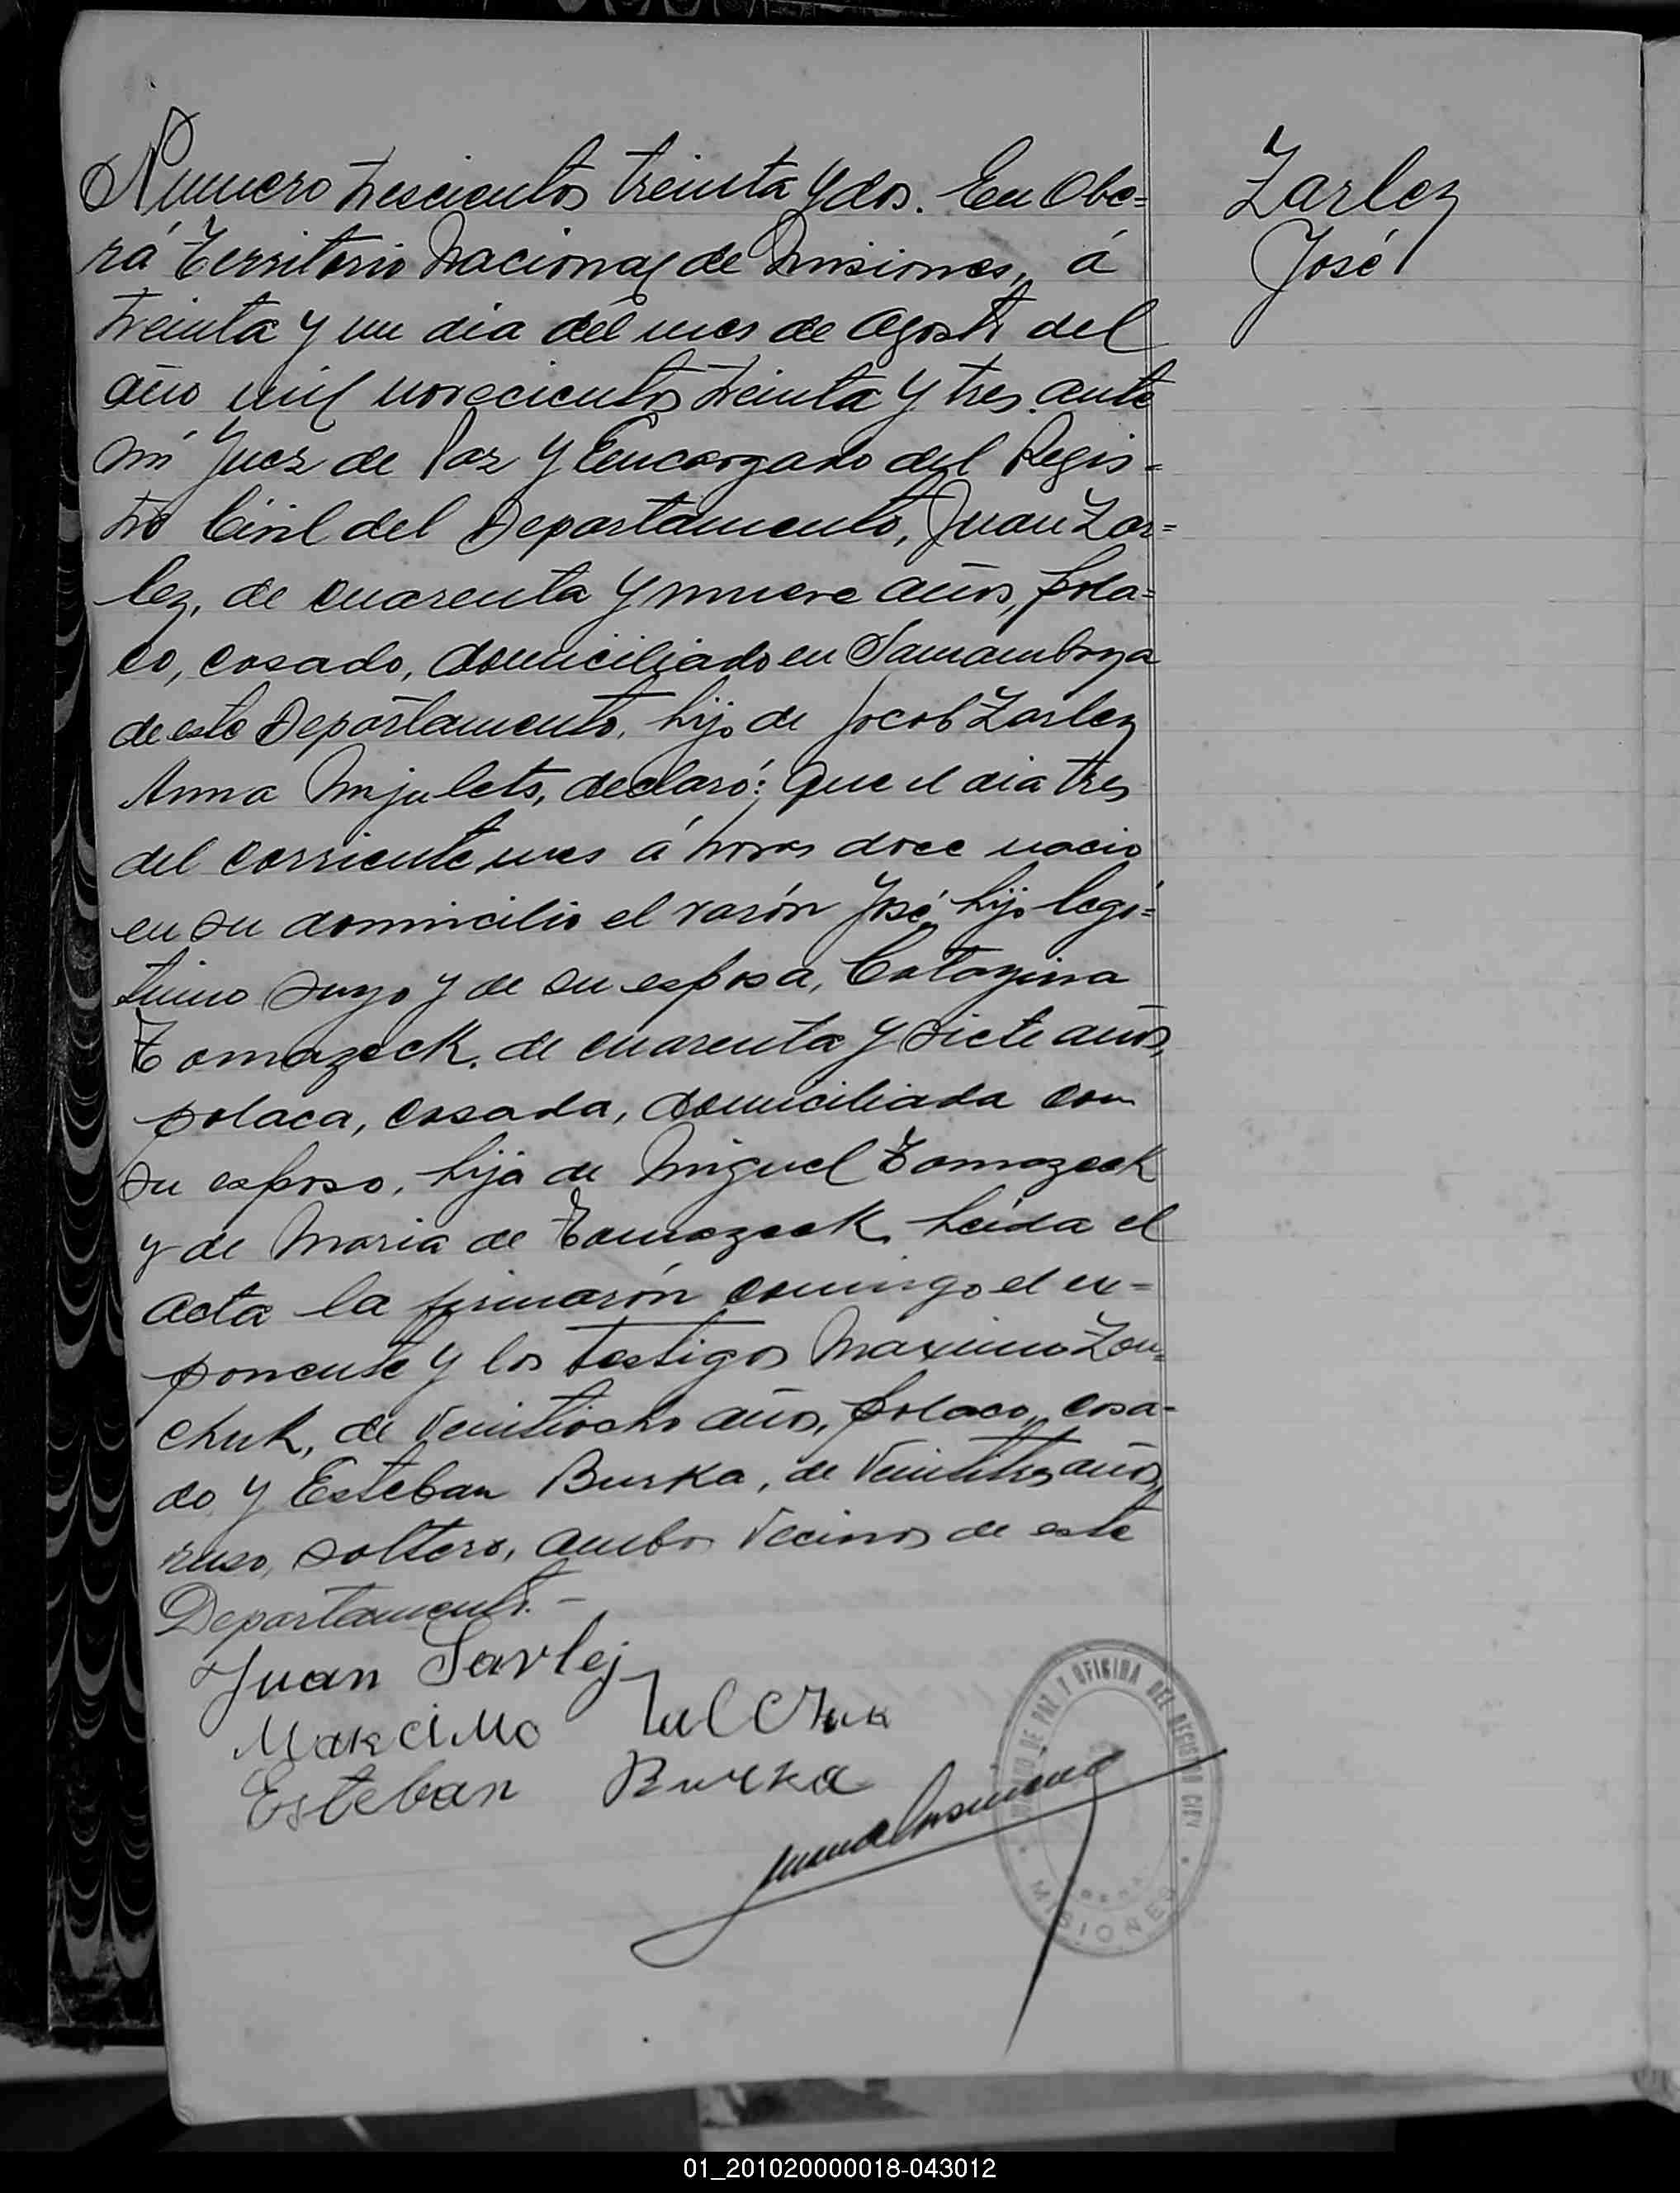 Número trescientos treinta y dos. En Obe=
rá Territorio Nacional de Misiones, á
treinta y un dia del mes de Agosto del
año mil novecientos treinta y tres, ante
mi Juez de Paz y Encargado del Regis=
tro Civil del Departamento, Juan Zar=
lez, de cuarenta y nueve años, pola=
co, casado, domiciliado en Samambaya
de este Departamento, hijo de Jacob Zarlez
Anna declaró: Que el dia tres
del corriente mes á horas doce nacio
en su domicilio el varón José, hijo legi=
timo suyo y de su esposa, Catazina
Tomazeck, de cuarenta y siete años,
polaca, casada, domiciliada con
su esposo, hija de Miguel Tomazeck
y de Maria de Tomazeck, Leída el
acta la firmarón conmigo el ex=
ponente y los testigos Maximo Zou=
chuk, de veintiocho años, polaco, casa-
do, y Esteban Burka, de veintitres años,
ruso, soltero, ambos vecinos de este
Departamento.-
Zarlez
José
Juan Sarlej
Makcimo
Esteban Burka
JUZGADO DE PAZ Y OFICINA DEL REGISTRO CIVIL
OBERÁ
MISIONES
01_201020000018-043012